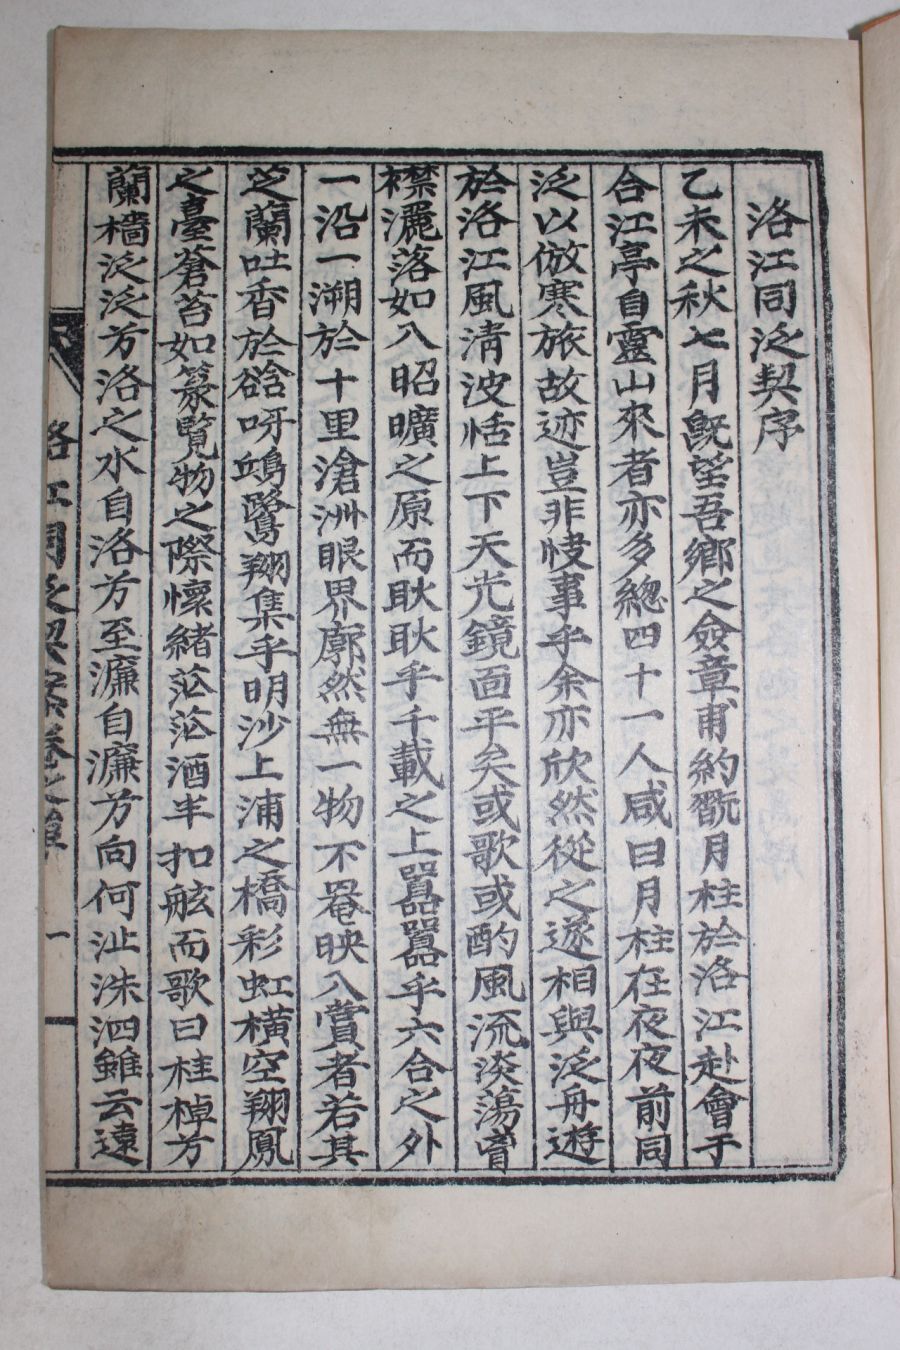 洛江同泛契序
乙未之秋七月旣望吾鄕之僉章甫約翫月柱於洛江赴會于
合江亭自靈山來者亦多總四十一人咸曰月柱在夜夜前同
泛以倣寒旅故迹豈非快事乎余亦欣然從之遂相與泛舟遊
於洛江風淸波恬上下天光鏡面平矣或歌或酌風流淡蕩胷
襟灑落如入昭曠之原而耿耿乎千載之上囂囂乎六合之外
一沿一溯於十里滄洲眼界廓然無一物不罨映入賞者若其
芝蘭吐香於谽呀鴻鷺翔集乎明沙上浦之橋彩虹橫空翔鳳
之臺蒼苔如篆覽物之際懷緖茫茫酒半扣舷而歌曰桂棹方
蘭檣泛泛方洛之水自洛方至濂自濂方向何沚洙泗雖云遠
洛江同泛契案卷之單
一